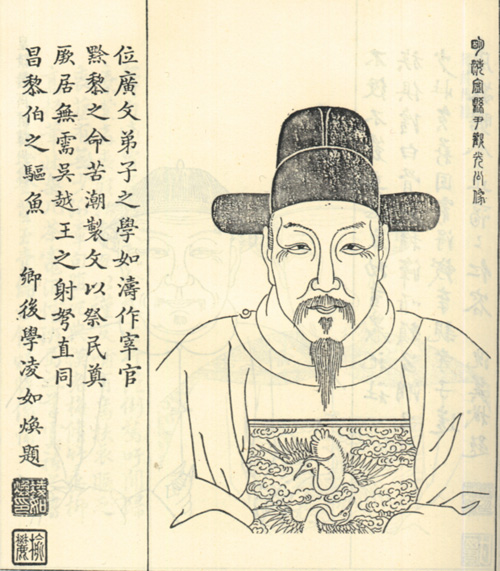 明海寧縣尹觀光公像
位廣文弟子之學如濤作宰官
黔黎之命苦潮製文以祭民奠
厥居無需吳越王之射弩直同
昌黎伯之驅魚
鄉後學凌如煥題